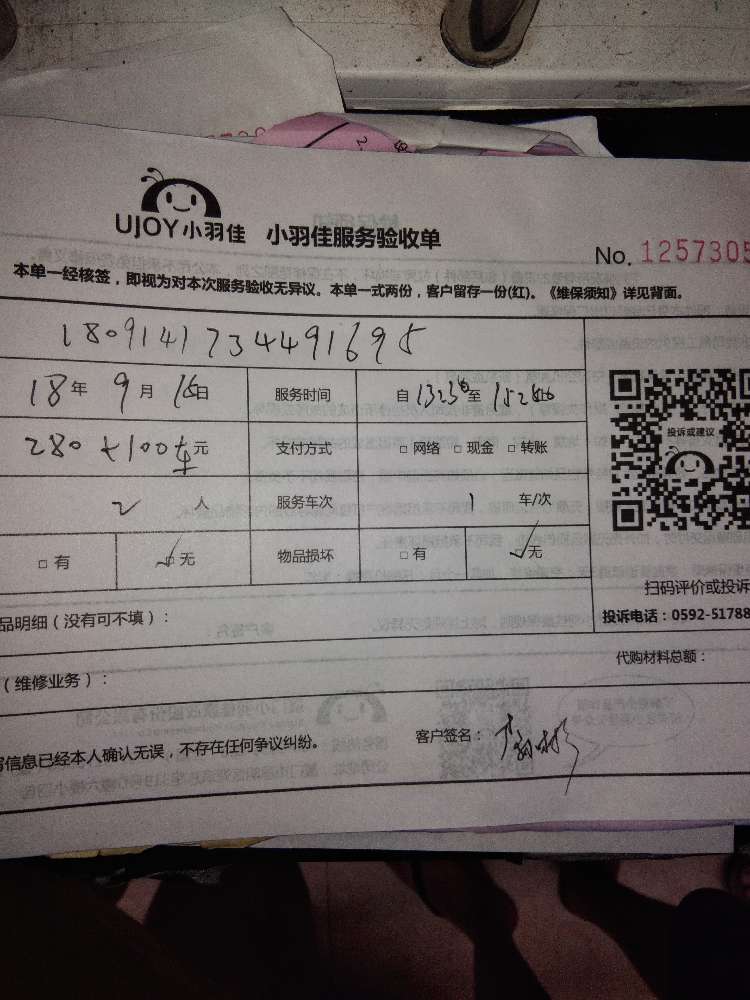 UJOY小羽佳 小羽佳服务验收单
No. 1257305
本单一经核签，即视为对本次服务验收无异议。本单一式两份，客户留存一份(红)。《维保须知》详见背面。
1809141734491695
18年 9月 16日 服务时间 自 至
280+100车元 支付方式 □网络 □现金 □转账
2 人 服务车次 1 车/次
□有 ☑无 物品损坏 □有 ☑无
投诉或建议
扫码评价或投诉
品明细（没有可不填）：
投诉电话：0592-51788
代购材料总额：
（维修业务）：
信息已经本人确认无误，不存在任何争议纠纷。
客户签名：